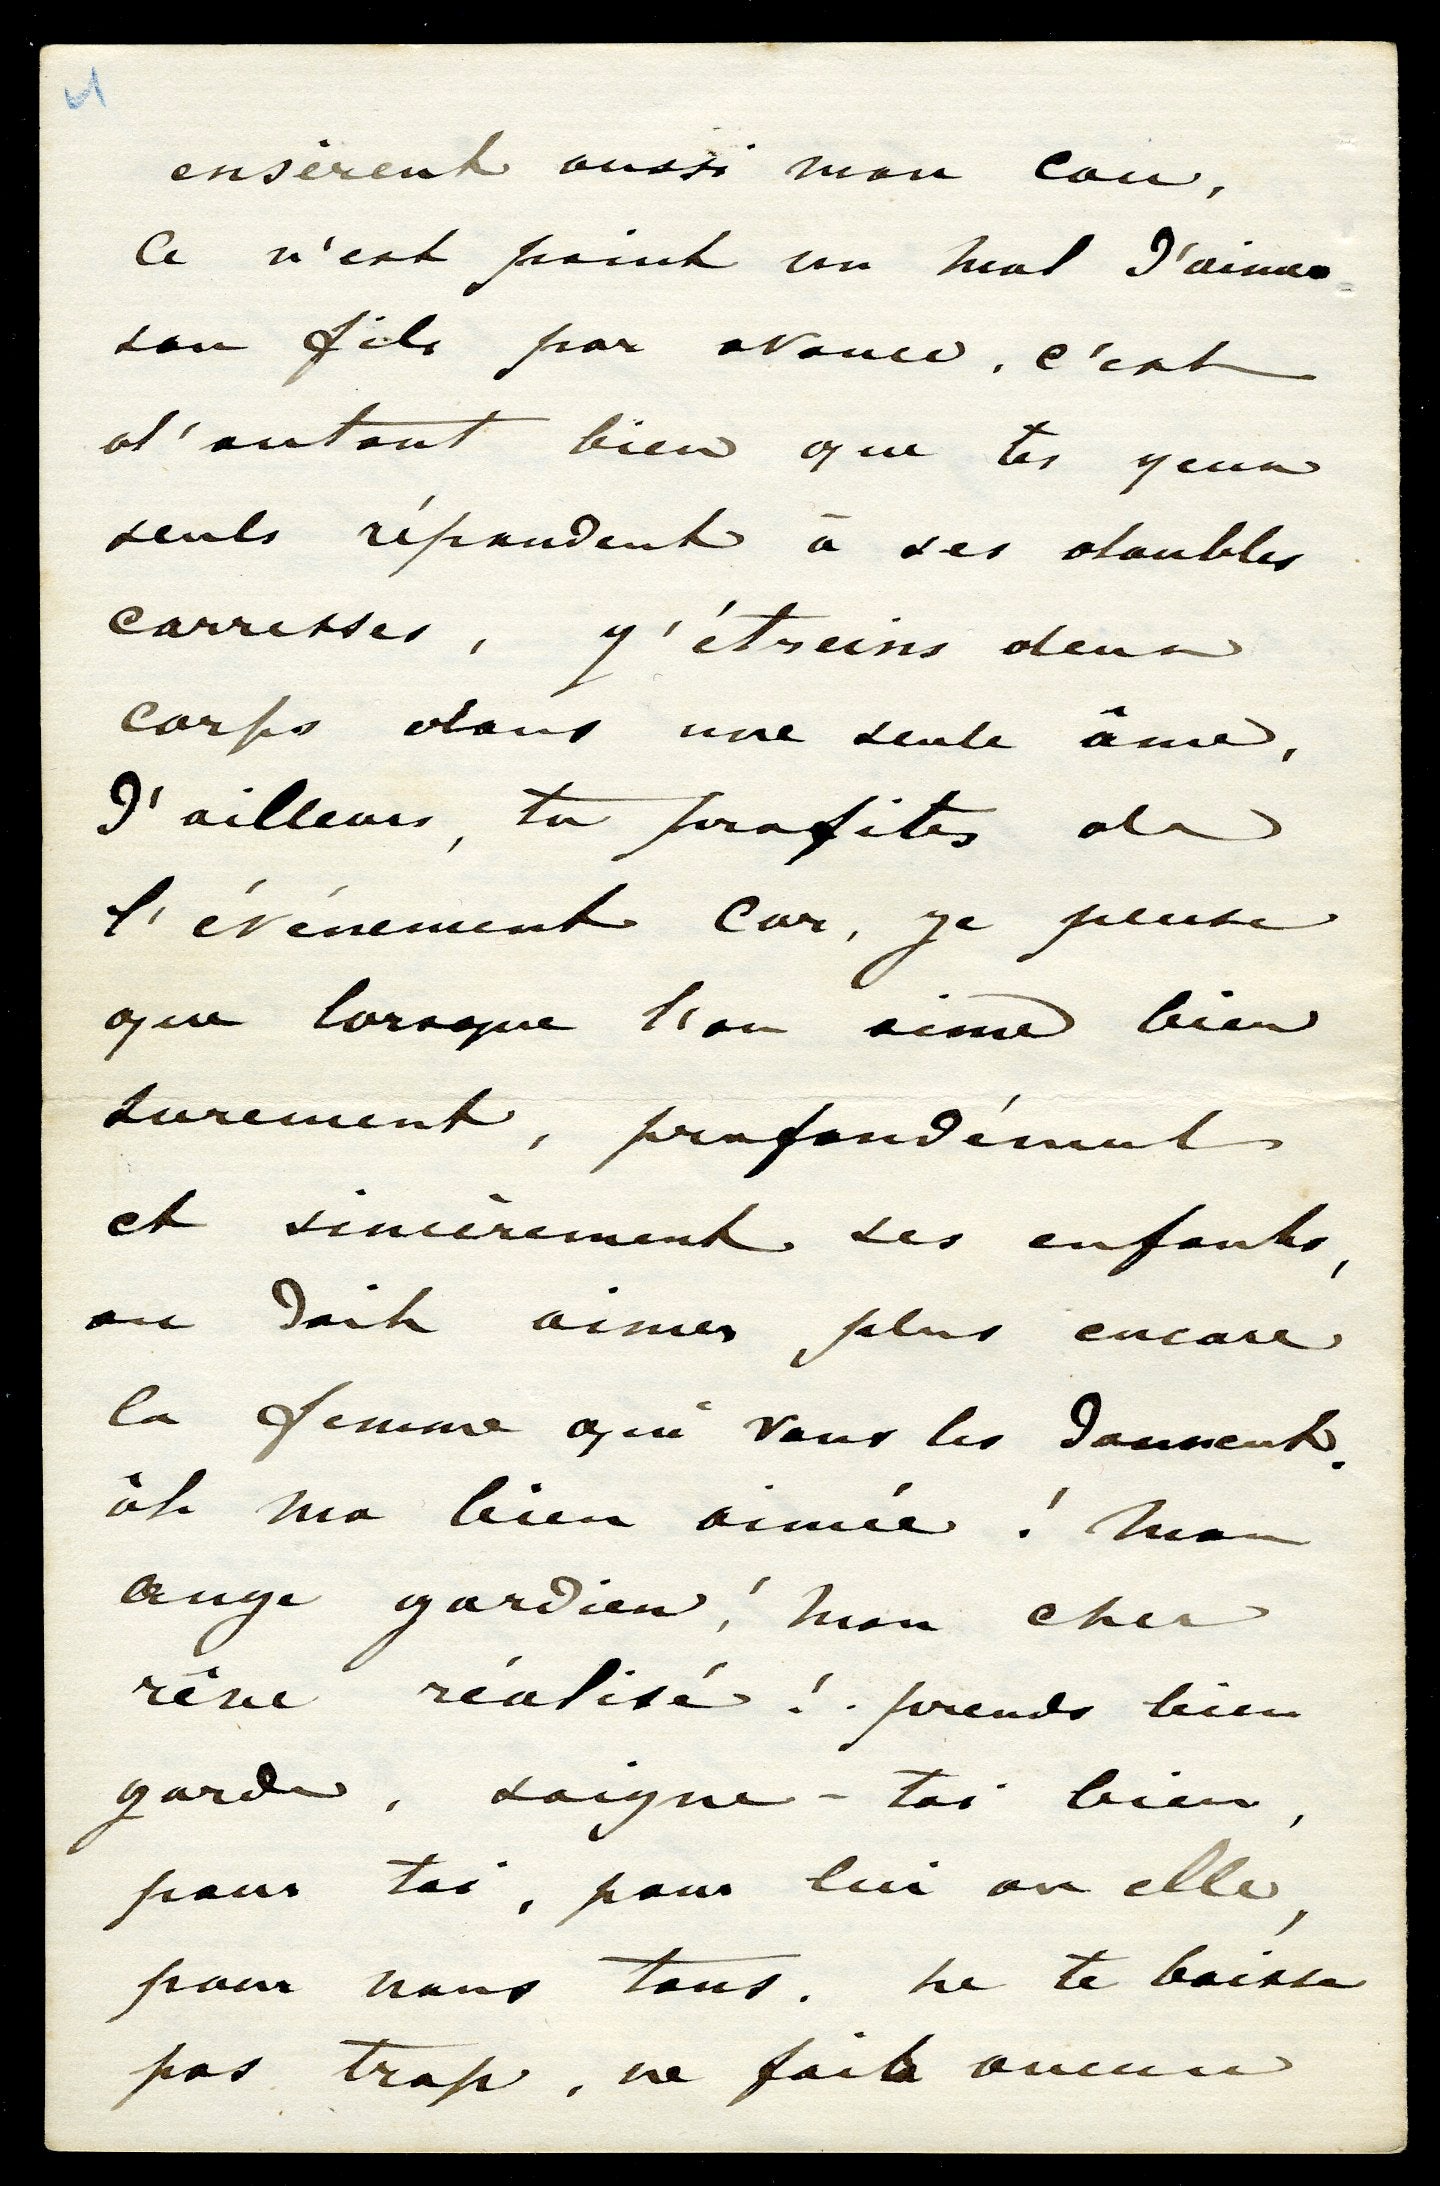 ensèrent aussi mon cou,
Ce n'est point un mal d'aimer
son fils par avance, c'est
d'autant bien que tes yeux
seuls répondent à ses doubles
carresses, j'étreins deux
corps dans une seule âme,
D'ailleurs, tu profites de
l'événement car, je pense
que lorsque l'on aime bien
surement, profondément
et sincèrement ses enfants,
on doit aimer plus encore
la femme qui vous les donnent.
ôh ma bien aimée ! Mon
ange gardien ! Mon cher
rêve réalisé ! prends bien
garde, soigne-toi bien,
pour toi, pour lui ou elle,
pour nous tous. ne te baisse
pas trop, ne fait aucun